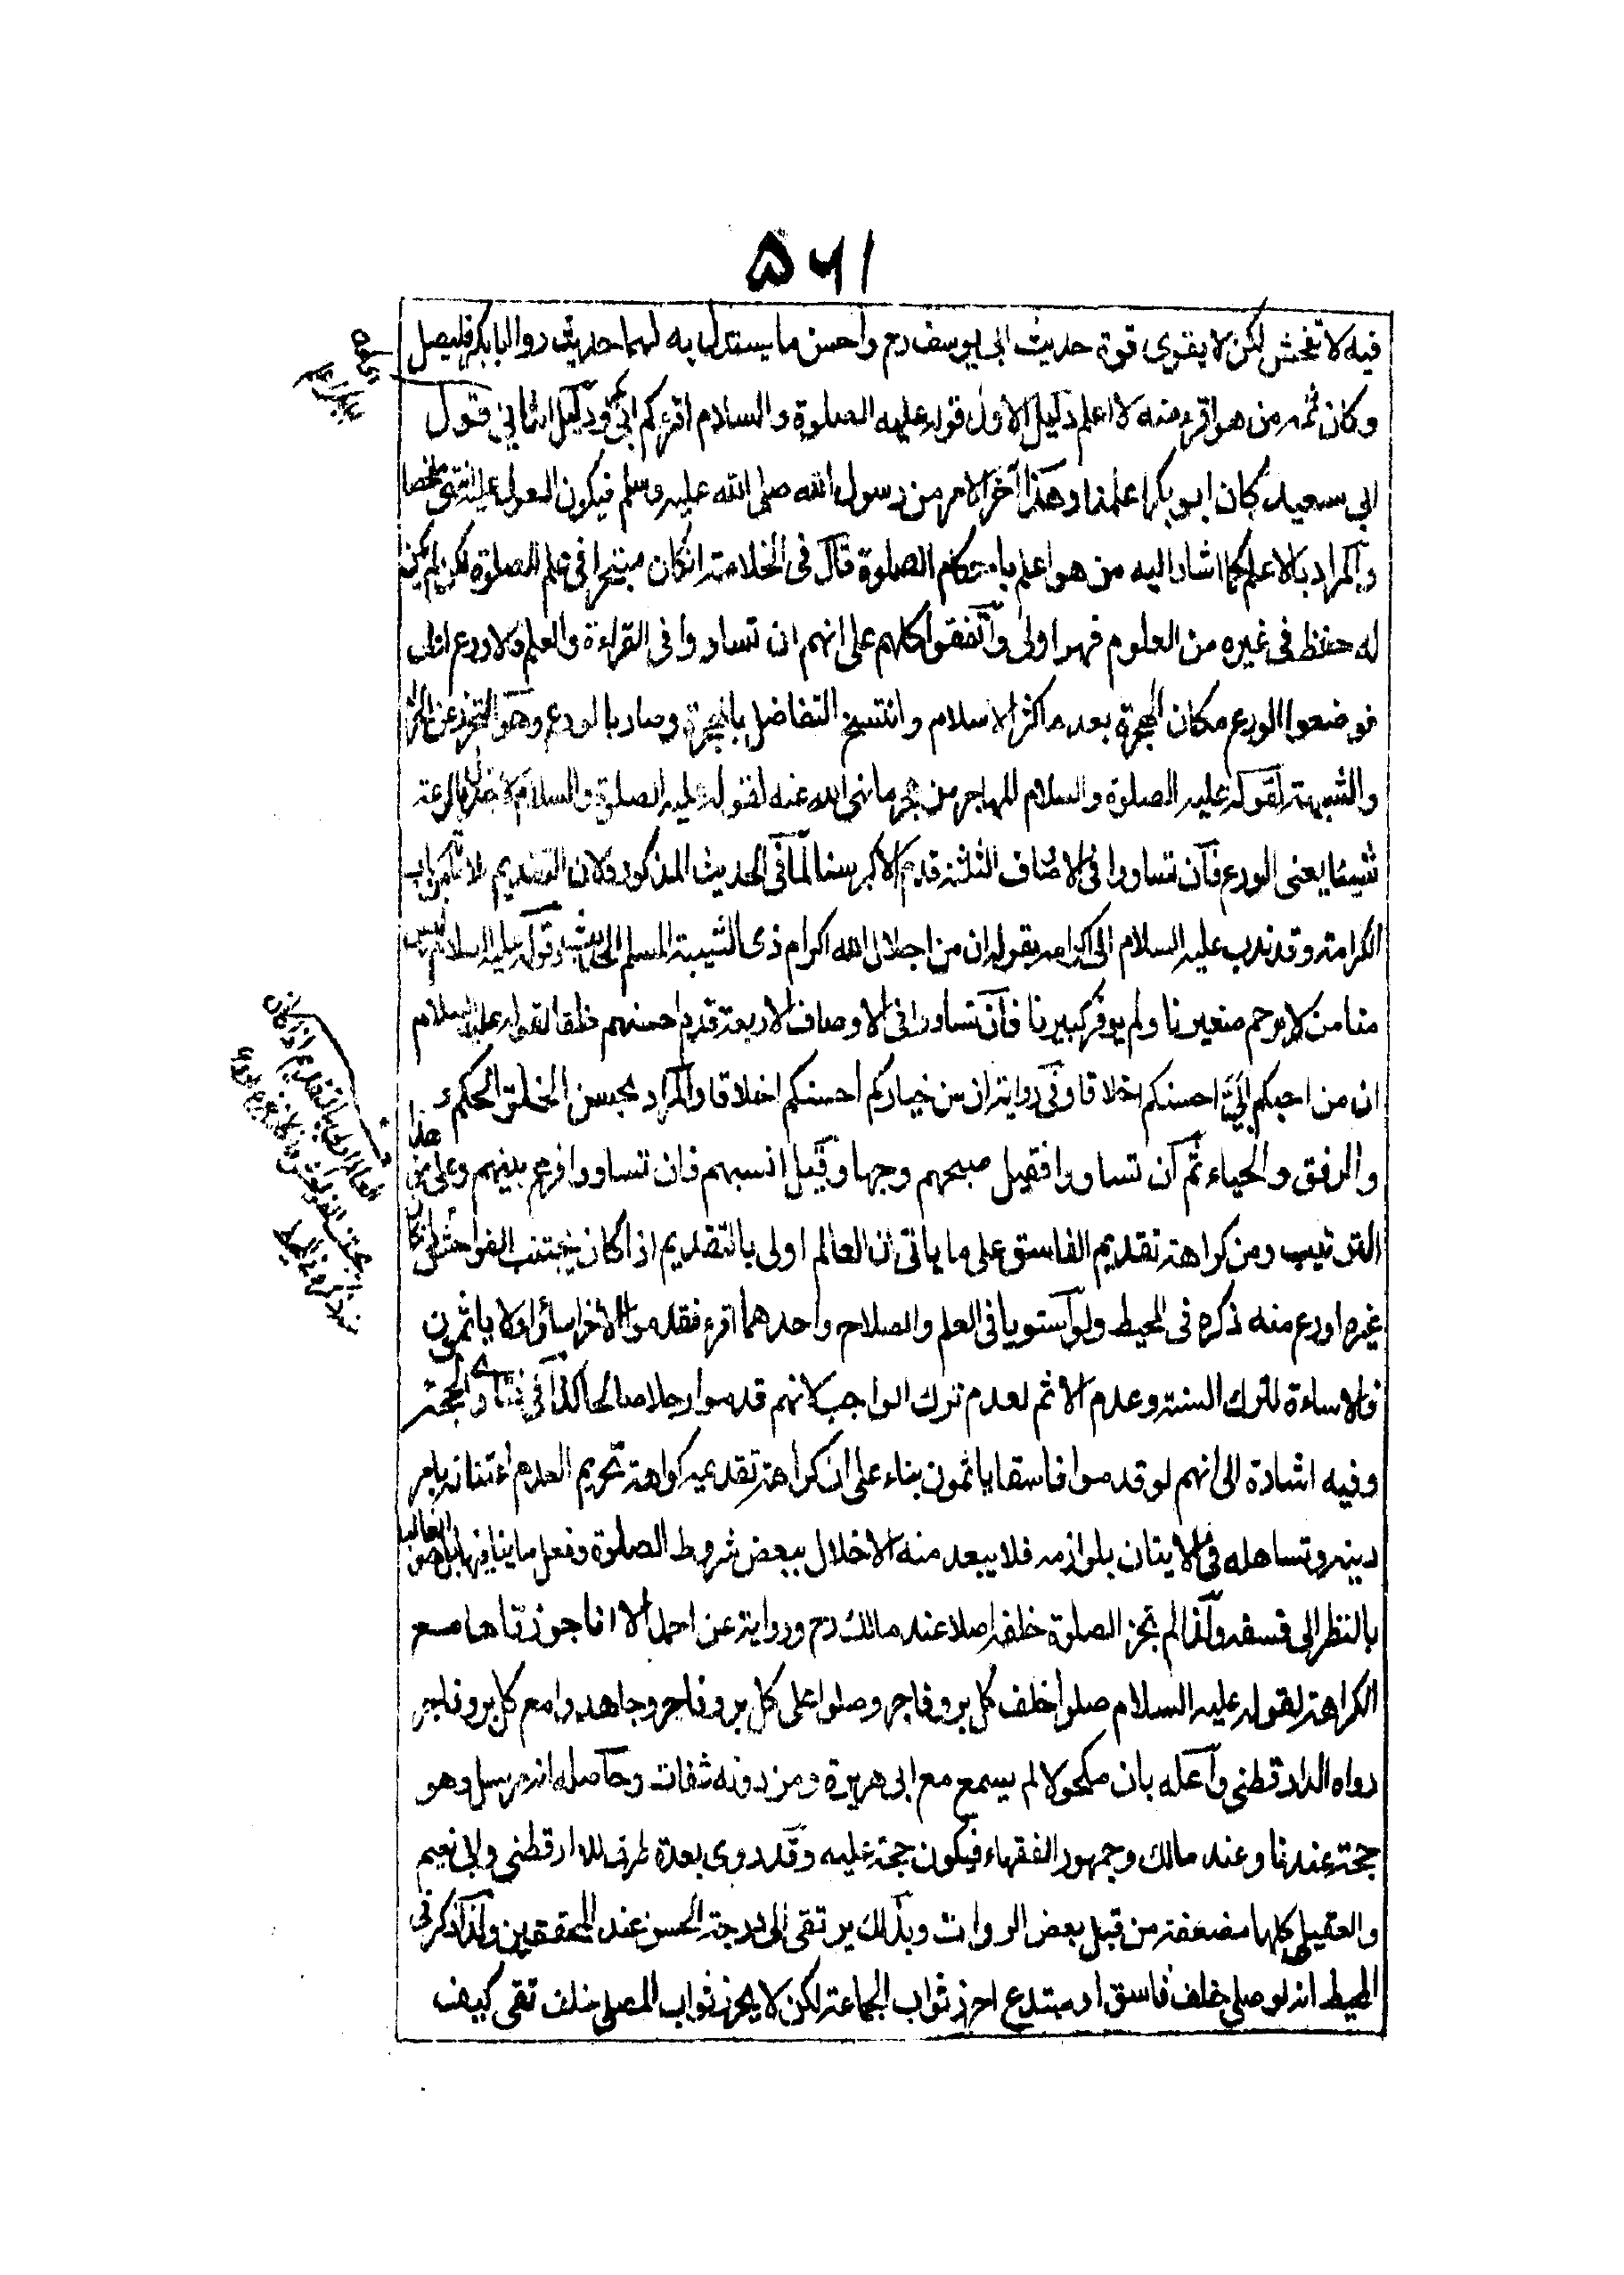 ۵۶۱
فيه لا تفحش لكن لا يقوى قوة حديث ابى يوسف رح واحسن ما يستدل به لهما حديث مروا ابا بكر فليصل
وكان ثمه من هو اقرء منه لا اعلم دليل الاول قوله عليه الصلوة والسلام اقرءكم ابى ودليل الثانى قول
ابى سعيد كان ابو بكر اعلمنا وهذا آخر الامر من رسول الله صلى الله عليه وسلم فيكون المعول عليه انتهى ملخصا
والمراد بالاعلم كما اشار اليه من هو اعلم باحكام الصلوة قال فى الخلاصة انكان متبحرا فى علم الصلوة لكن لم يكن
له حفظ فى غيره من العلوم فهو اولى واتفقوا كلهم على انهم ان تساووا فى القراءة والعلم فالاورع
فوضعوا الورع مكان الهجرة بعد ما كثر الاسلام وانتسخ التفاضل بالهجرة وصار بالورع وهو التحرز عن
والشبهة لقوله عليه الصلوة والسلام المهاجر من هجر ما نهى الله عنه لقوله عليه الصلوة والسلام لا تعدل بالرعة
شيئا يعنى الورع فان تساووا فى الاوصاف الثلثة قدم الاكبر سنا لما فى الحديث المذكور ولان التقديم من باب
الكرامة وقد ندب عليه السلام الى اكرامه بقوله ان من اجلال الله اكرام ذى الشيبة المسلم الحديث وقوله عليه السلام ليس
منا من لا يرحم صغيرنا ولم يوقر كبيرنا فان تساووا فى الاوصاف الاربعة قدم احسنهم خلقا لقوله عليه السلام
ان من احبكم الىّ احسنكم اخلاقا وفى رواية ان من خياركم احسنكم اخلاقا والمراد بحسن الخلق الحكم
والرفق والحياء ثم ان تساووا فقيل صبحهم وجها وقيل انسبهم فان تساووا اقرع بينهم وعلى من هذا
الترتيب ومن كراهة تقديم الفاسق على ما ياتى ان العالم اولى بالتقديم اذا كان يجتنب الفواحش وان كان
غيره اورع منه ذكره فى المحيط ولو استويا فى العلم والصلاح واحدهما اقرء فقدموا الاخر اساؤا ولا ياثمون
فالاساءة لترك السنة وعدم الاثم لعدم ترك الواجب لانهم قدموا رجلا صالحا كذا فى فتاوى الحجة
وفيه اشارة الى انهم لو قدموا فاسقا ياثمون بناء على ان كراهة تقديمه كراهة تحريم لعدم اعتنائه بامر
دينه وتساهله فى الاتيان بلوازمه فلا يبعد منه الاخلال ببعض شروط الصلوة وفعل ما ينافيها بل هو الغالب
بالنظر الى فسقه ولذا لم تجز الصلوة خلفه اصلا عند مالك رح ورواية عن احمد الا انا جوزناها مع
الكراهة لقوله عليه السلام صلوا خلف كل بر وفاجر وصلوا على كل بر وفاجر وجاهدوا مع كل بر وفاجر
رواه الدارقطنى واعله بان مكحولا لم يسمع مع ابى هريرة ومن دونه ثقات وحاصله انه مرسل وهو
حجة عندنا وعند مالك وجمهور الفقهاء فيكون حجة عليه وقد روى بعدة طرق للدارقطنى ولابى نعيم
والعقيلى كلها مضعفة من قبل بعض الروات وبذلك يرتقى الى درجة الحسن عند المحققين ولذا ذكر فى
المحيط انه لو صلى خلف فاسق او مبتدع احرز ثواب الجماعة لكن لا يحرز ثواب المصلى خلف تقى كيف